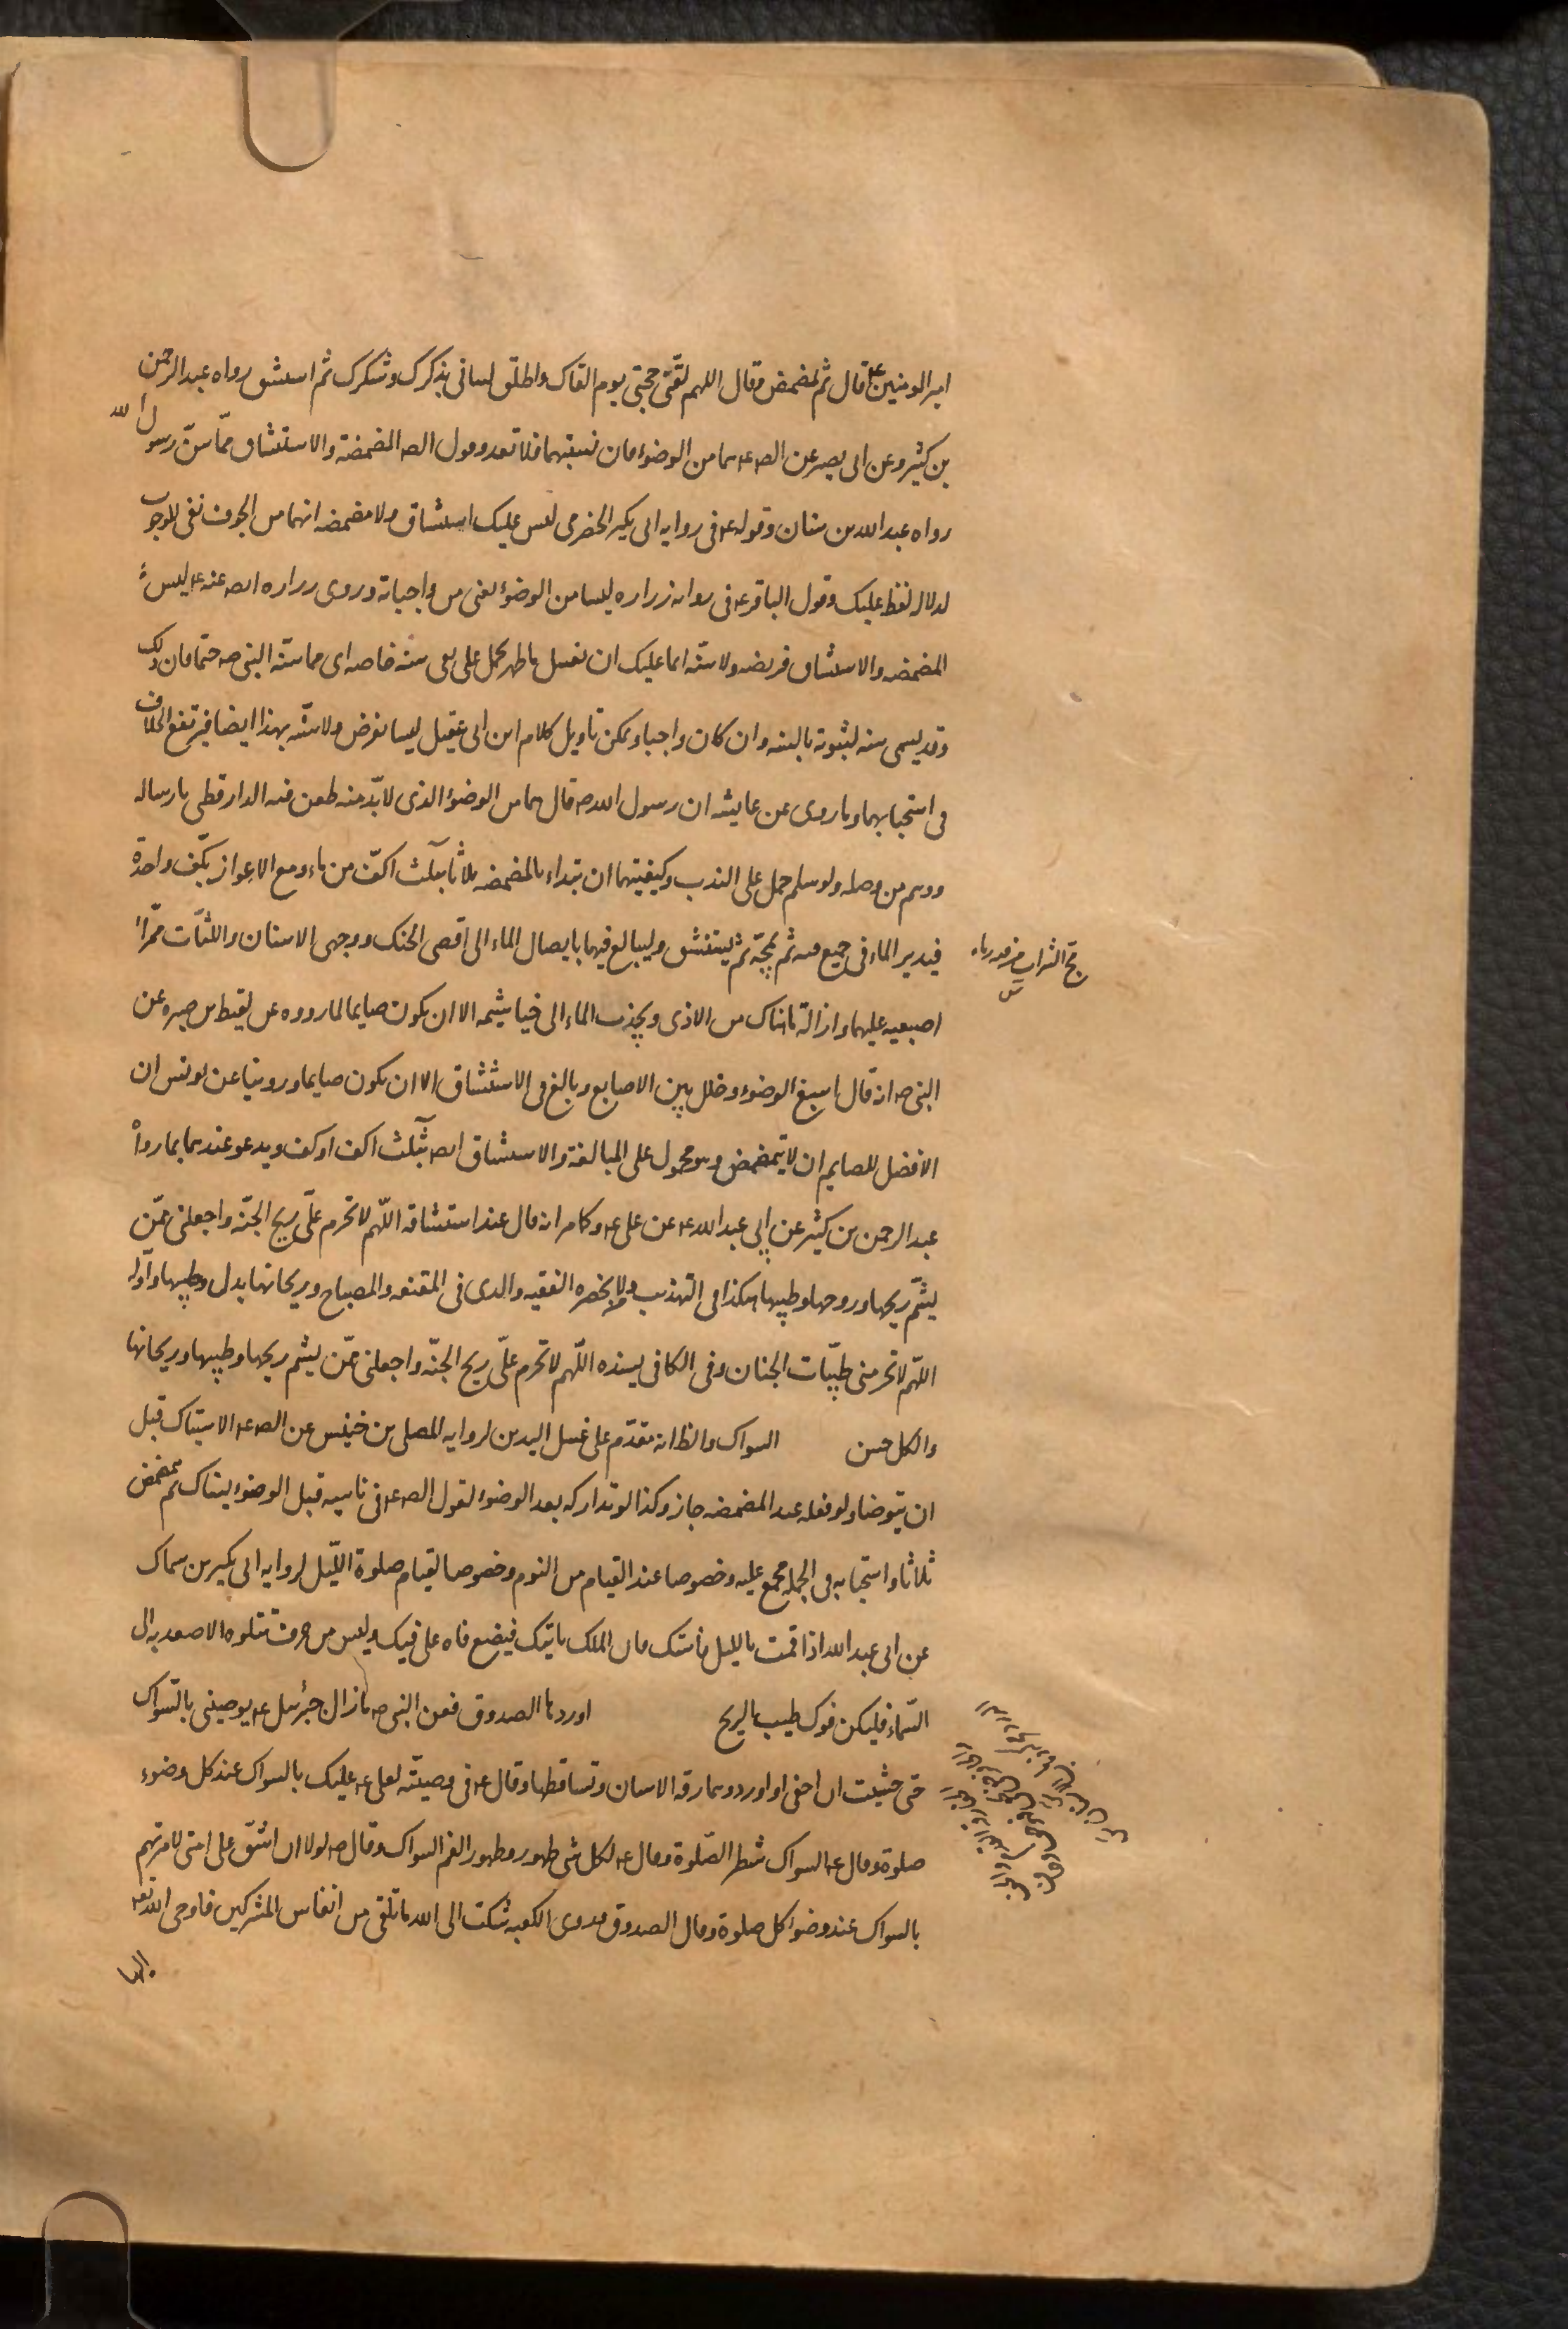 امير المومنين ع قال ثم تمضمض وقال اللهم لقني حجتي يوم القاك واطلق لساني بذكرك وشكرك ثم استنشق رواه عبد الرحمن
بن كثير وعن ابى بصير عن الص ع هما من الوضوء فان نسيتهما فلا تعد وقول الص المضمضة والاستنشاق مما سن رسول الله
رواه عبد الله بن سنان وقوله ع فى رواية ابى بكير الحضرمى ليس عليك استنشاق ولا مضمضه انهما من الجوف نفى للوجوب
لدلاله لفظ عليك وقول الباقر ع فى روايه زراره ليسا من الوضوء يعنى من واجباته وروى زراره ايضا عنه ع ليس
المضمضه والاستنشاق فريضه ولا سنه انما عليك ان تغسل ما ظهر يحمل على نفى سنه خاصه اى مما سنه النبى صه حتما فان ذلك
وقد يسمى سنه لثبوته بالسنه وان كان واجبا ويمكن تاويل كلام ابن ابى عقيل ليسا بفرض ولا سنه بهذا ايضا فيرتفع الخلاف
فى استحبابهما وما روى عن عايشه ان رسول الله صه قال هما من الوضوء الذى لا بد منه طعن فيه الدارقطنى بارساله
ووهم من وصله ولو سلم حمل على الندب وكيفيتهما ان تبداء بالمضمضه ثلاثا بثلث اكف من ماء ومع الاعواز بكف واحدة
فيدير الماء فى جميع فيه ثم يمجه ثم يستنشق وليبالغ فيهما بايصال الماء الى اقصى الحنك ووجهى الاسنان واللثات ممرا
مج الشراب من فيه رماه
اصبعيه عليهما وازالة ما هناك من الاذى ويجذب الماء الى خياشيمه الا ان يكون صايما لما رووه عن لقيط بن صبره عن
النبى صه انه قال اسبغ الوضوء وخلل بين الاصابع وبالغ فى الاستنشاق الا ان يكون صايما وروينا عن يونس ان
الافضل للصايم ان لا يتمضمض وهو محمول على المبالغة والاستنشاق ايضا بثلث اكف او كف ويدعو عندهما بما رواه
عبد الرحمن بن كثير عن ابى عبد الله ع عن على ع وكما مر انه قال عند استنشاقه اللهم لا تحرم على ريح الجنة واجعلنى ممن
يشم ريحها وروحها وطيبها هكذا فى التهذيب ومن لا يحضره الفقيه والذى فى المقنعه والمصباح وريحانها بدل وطيبها واوله
اللهم لا تحرمنى طيبات الجنان وفى الكافى بسنده اللهم لا تحرم على ريح الجنة واجعلنى ممن يشم ريحها وطيبها وريحانها
والكل حسن السواك والظ انه مقدم على غسل اليدين لروايه المعلى بن خنيس عن الص ع الاستياك قبل
ان يتوضا ولو فعله عند المضمضه جاز وكذا لو تداركه بعد الوضوء لقول الص ع فى ناسيه قبل الوضوء يستاك ثم يتمضمض
ثلاثا واستحبابه فى الجمله مجمع عليه وخصوصا عند القيام من النوم وخصوصا لقيام صلوة الليل لروايه ابى بكير بن سماك
عن ابى عبد الله اذا قمت بالليل فاستك فان الملك ياتيك فيضع فاه على فيك وليس من حرف تتلوه الا صعد به الى
السماء فليكن فوك طيب الريح اوردها الصدوق فعن النبى صه ما زال جبرئيل ع يوصينى بالسواك
حتى خشيت ان احفى او اورد وهما رقه الاسنان وتساقطها وقال ع فى وصيته لعلى ع عليك بالسواك عند كل وضوء
صلوة وقال ع السواك شطر الصلوة وقال ع لكل شى طهور وطهور الفم السواك وقال صه لولا ان اشق على امتى لامرتهم
بالسواك عند وضوء كل صلوة وقال الصدوق وروى الكعبه شكت الى الله ما تلقى من انفاس المشركين فاوحى الله تع
اليها